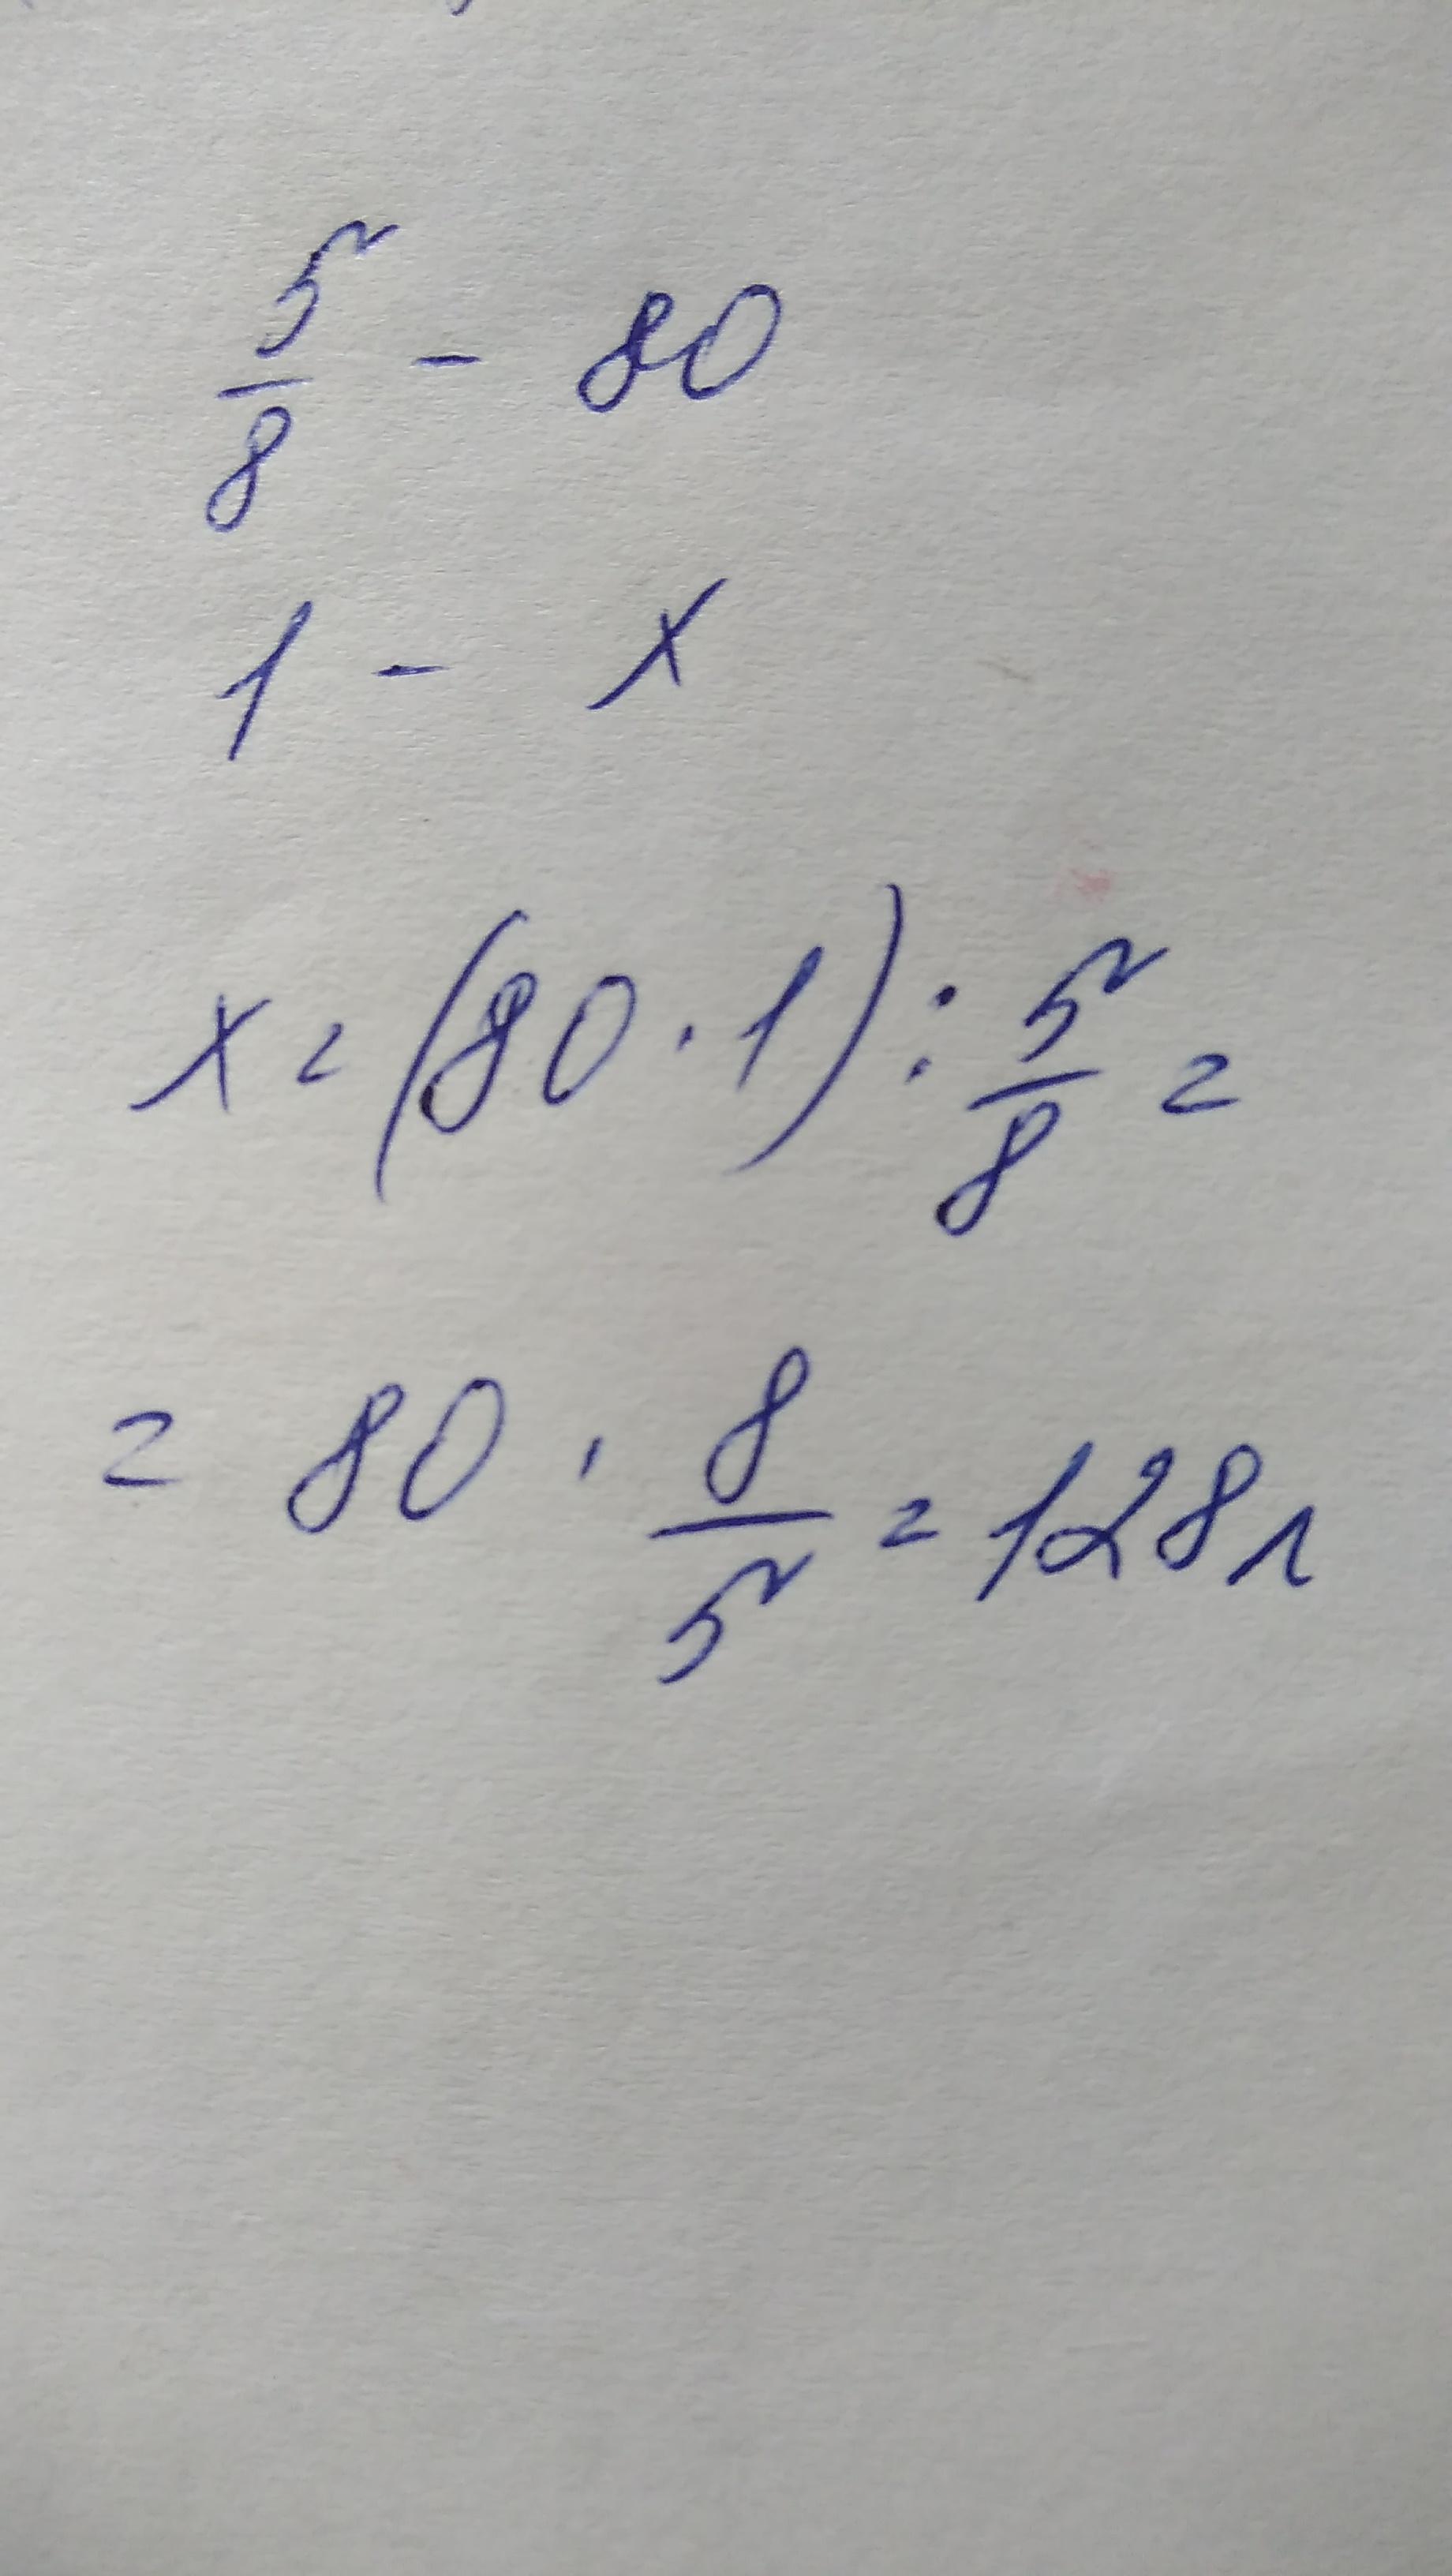 5/8 - 80
1 - x
x = (80 · 1) : 5/8 =
= 80 · 8/5 = 128л